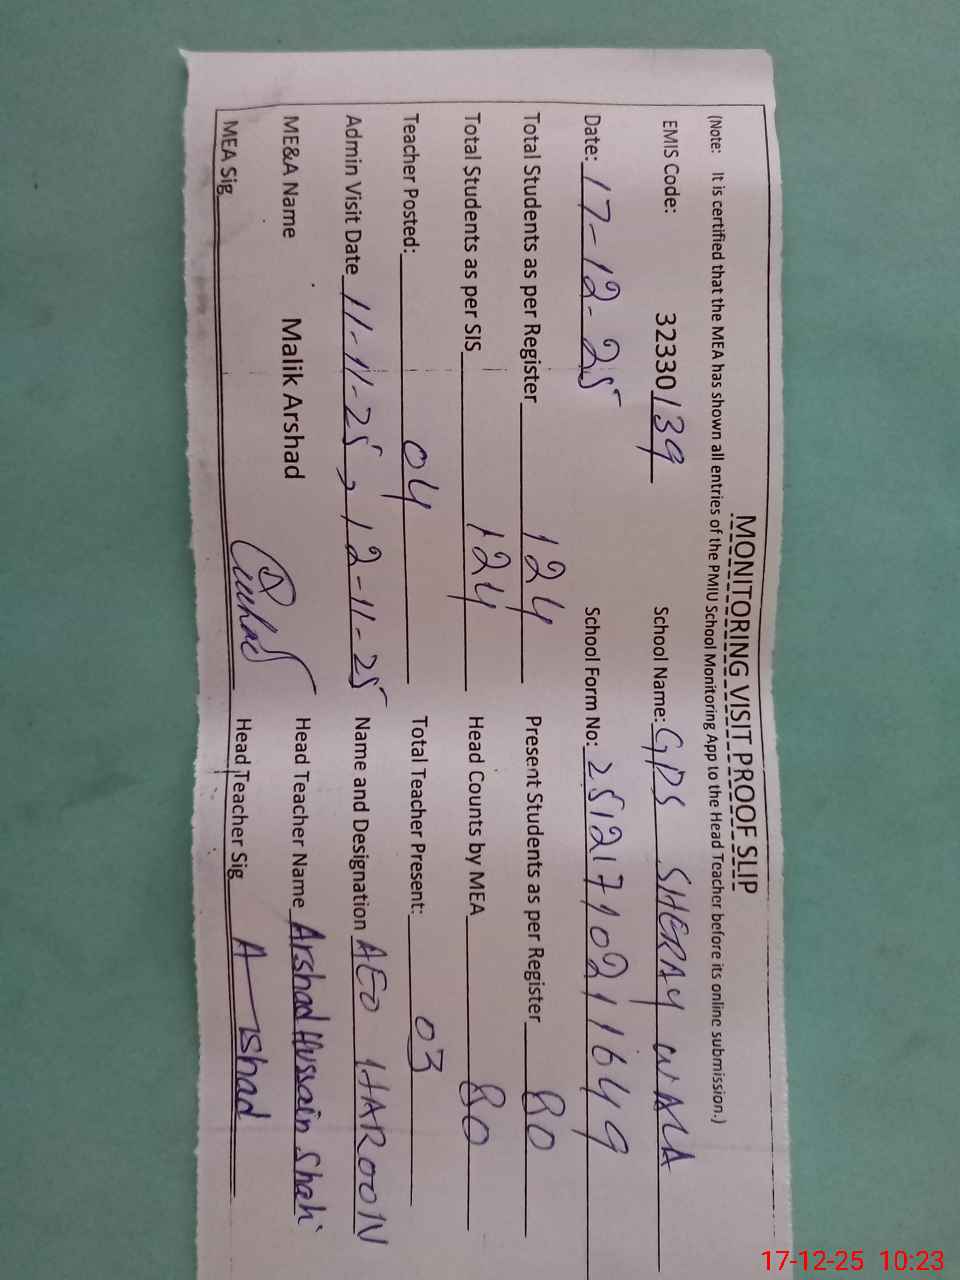 MONITORING VISIT PROOF SLIP
(Note: It is certified that the MEA has shown all entries of the PMIU School Monitoring App to the Head Teacher before its online submission.)
EMIS Code: 32330139 School Name: GPS SHERAY WALA
Date: 17-12-25 School Form No: 25121710211649
Total Students as per Register 124 Present Students as per Register 80
Total Students as per SIS 124 Head Counts by MEA 80
Teacher Posted: 04 Total Teacher Present: 03
Admin Visit Date 11-11-25, 12-11-25 Name and Designation AEO HAROON
ME&A Name Malik Arshad Head Teacher Name Arshad Hussain Shah
MEA Sig Head Teacher Sig Arshad
17-12-25 10:23